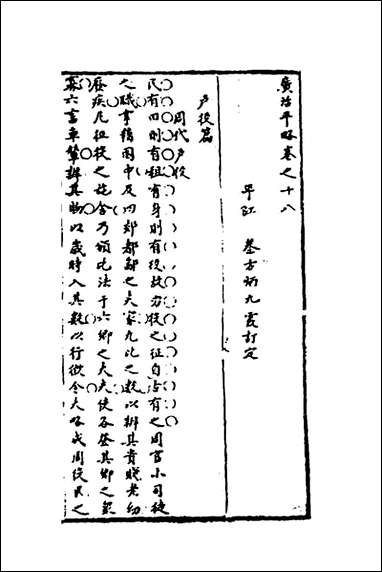 廣治平略卷之十八
平江 蔡方炳九霞訂定
戶役篇
周代戶役
民有田則有租有身則有役故力役之征自古有之周官小司徒
之職掌稽國中及四郊都鄙之夫家九比之數以辨其貴賤老幼
廢疾凡征役之施舍乃頒比法于六鄉之大夫使各登其鄉之衆
寡六畜車輦辨其物以歲時入其數以行徵令大略成周役民之